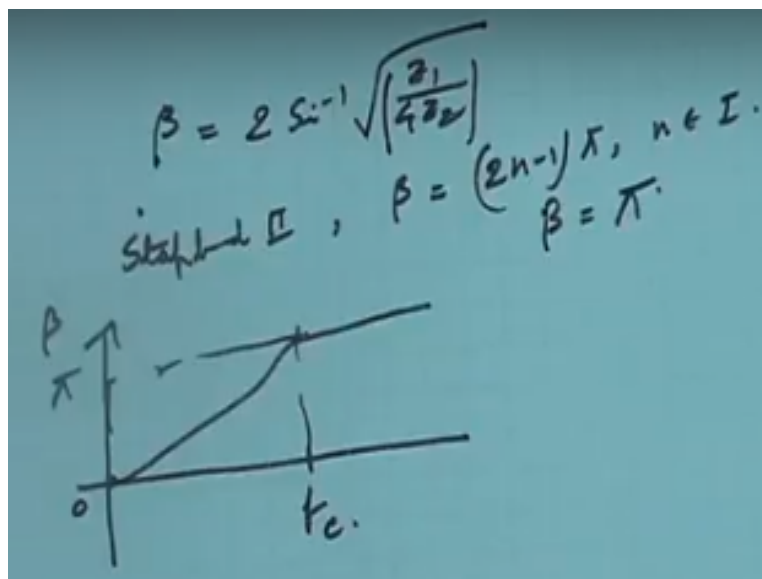 β = 2 Sin⁻¹ √(|z₁/4z₂|)
Stopband II, β = (2n-1)π, n ∈ I.
β = π.
β
π
0
fc.